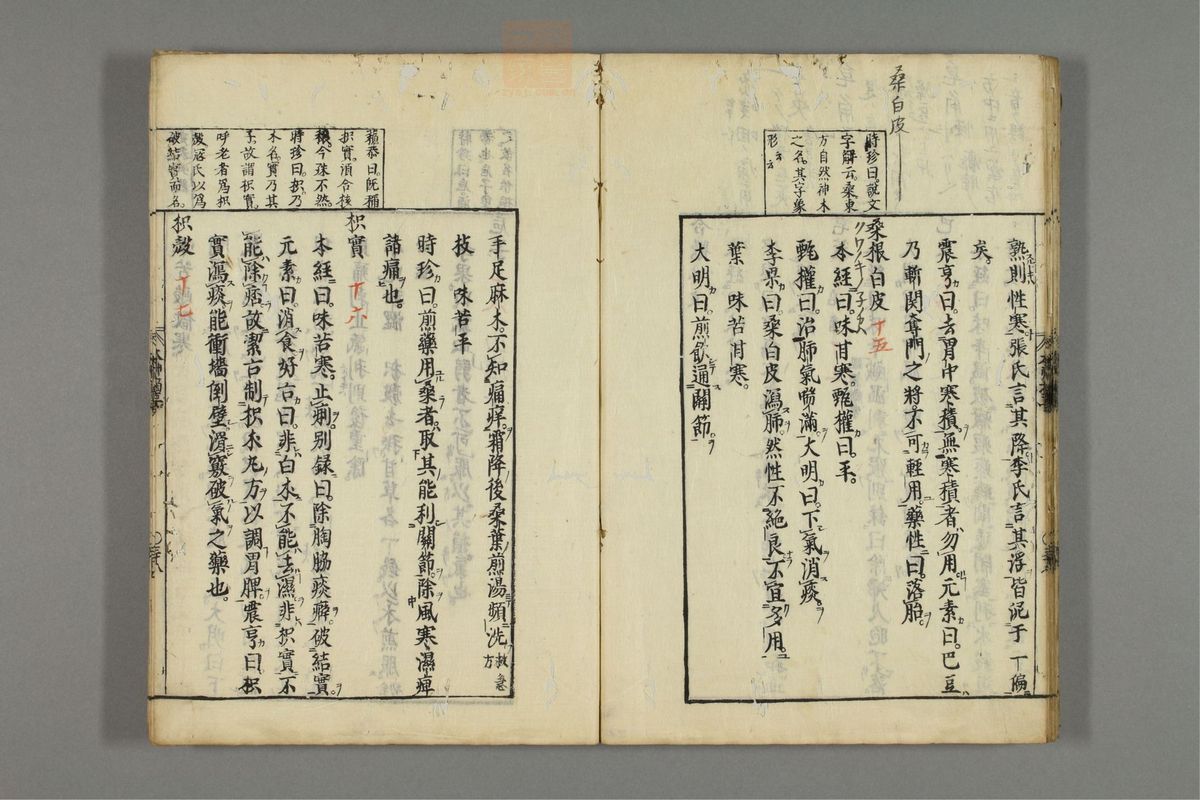 桑白皮
時珍曰。說文
字解云。桑東
方自然神木
之名。其字象
形云
熟則性寒。張氏言其降李氏言其浮。皆泥于一偏
矣。
震亨曰。去胃中寒積。無寒積者勿用。元素曰。巴豆
乃斬関奪門之將。不可輕用。藥性曰。落胎。
桑根白皮 十五
本經曰。味甘寒。甄權曰。平。
甄權曰。治肺氣喘滿。大明曰。下氣消痰。
李杲曰。桑白皮瀉肺。然性不純良。不宜多用。
葉 味苦甘寒。
大明曰。煎飲通關節。
頌今殊不然。
時珍曰。枳乃
木名。實乃其
子。故謂枳實。
呼老者爲枳
殼冦氏以爲
破結實而名。
手足麻木。不知痛痒。霜降後桑葉煎湯頻洗 救急方
枝 味苦平
時珍曰。煎藥用桑者。取其能利關節。除風寒濕痺
諸痛也。
枳實 十六
本經曰。味苦寒。止痢。别録曰。除胸脇痰癖。破結實。
元素曰。消食。好古曰。非白朮不能去濕。非枳實不
能除痞。故潔古制枳朮丸方以調胃脾。震亨曰。枳
實瀉痰。能衝墻倒壁。滑竅破氣之藥也。
枳殼 十七